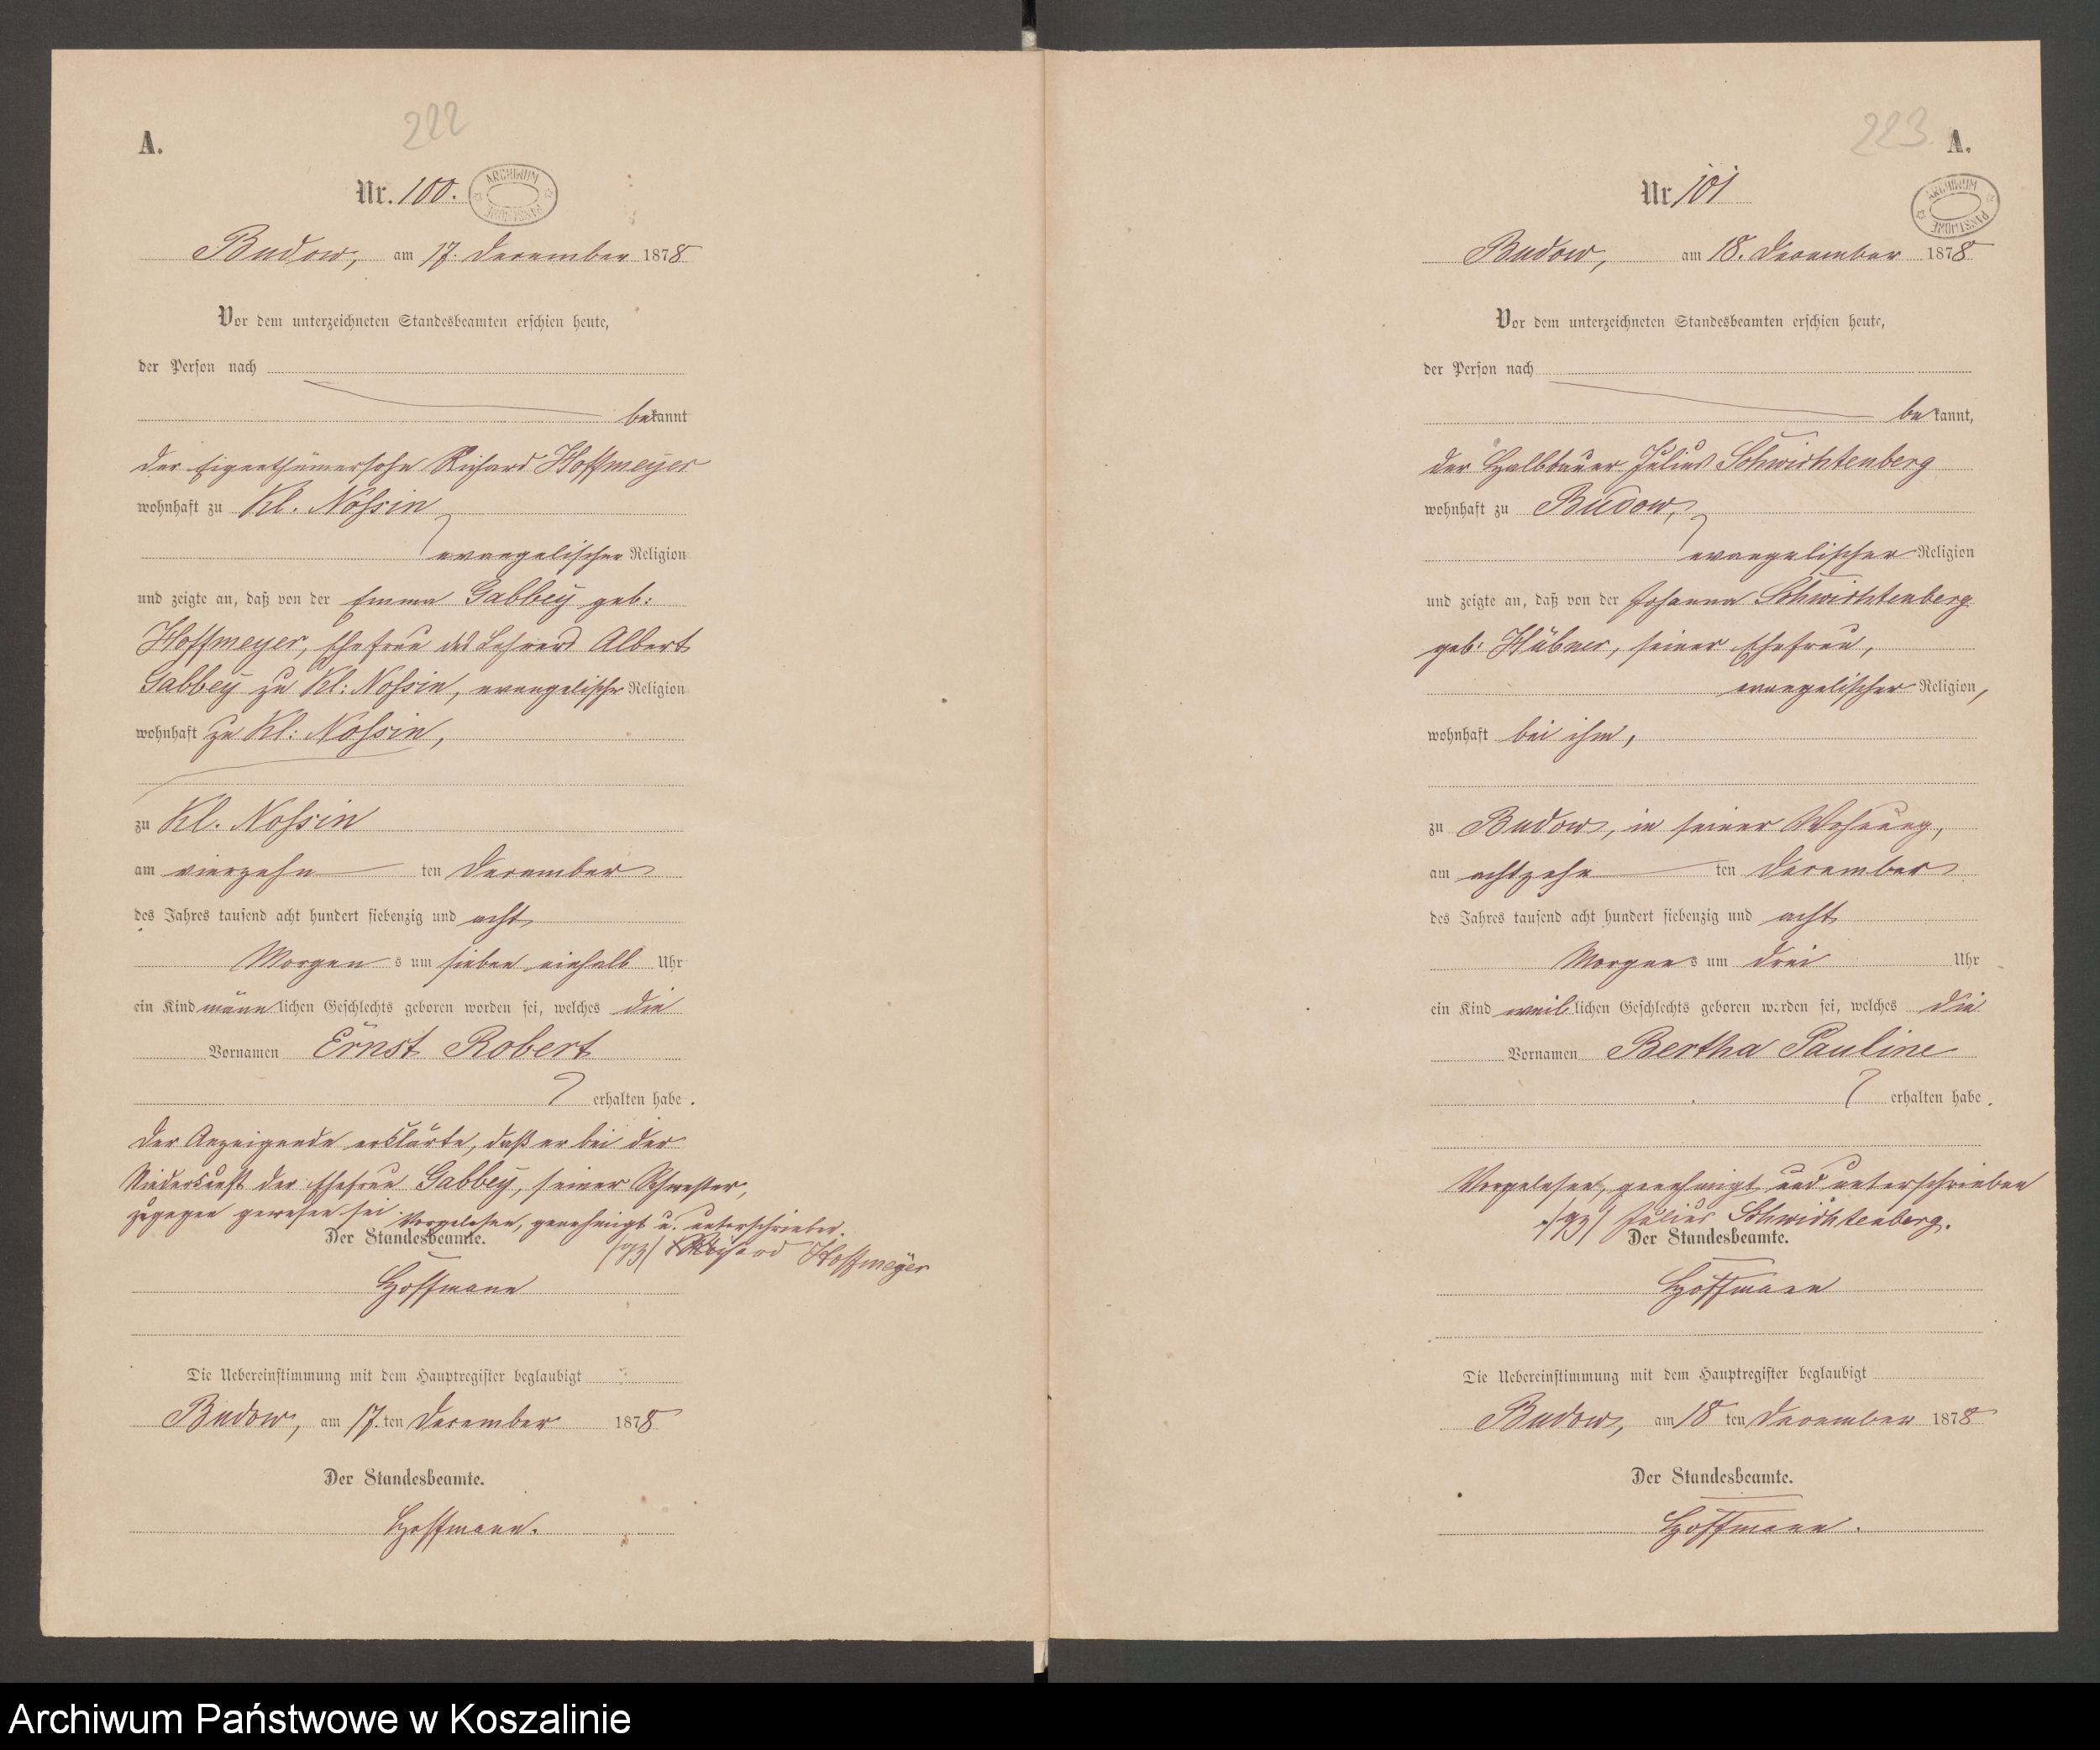 222
A.
Nr. 100.
ARCHIWUM PAŃSTWOWE
Budow, am 17. December 1878
Vor dem unterzeichneten Standesbeamten erschien heute,
der Person nach
bekannt
der Eigenthümersohn Richard Hoffmeyer
wohnhaft zu Kl. Nossin
evangelischer Religion
und zeigte an, daß von der Emma Gabbey geb:
Hoffmeyer, Ehefrau des Lehrers Albert
Gabbey zu Kl: Nossin, evangelischer Religion
wohnhaft zu Kl: Nossin,
zu Kl. Nossin
am vierzehn ten December
des Jahres tausend acht hundert siebenzig und acht
Morgens um sieben einhalb Uhr
ein Kind männlichen Geschlechts geboren worden sei, welches die
Vornamen Ernst Robert
erhalten habe.
Der Anzeigende erklärte, daß er bei der
Niederkunft der Ehefrau Gabbey, seiner Schwester,
zugegen gewesen sei. Vorgelesen, genehmigt u. unterschrieben.
Der Standesbeamte.
/gz/ Richard Hoffmeyer
Hoffmann
Die Uebereinstimmung mit dem Hauptregister beglaubigt
Budow, am 17. ten December 1878
Der Standesbeamte.
Hoffmann.
223
A.
Nr. 101
ARCHIWUM PAŃSTWOWE
Budow, am 18. December 1878
Vor dem unterzeichneten Standesbeamten erschien heute,
der Person nach
bekannt,
der Halbbauer Julius Schwichtenberg
wohnhaft zu Budow,
evangelischer Religion
und zeigte an, daß von der Johanna Schwichtenberg
geb: Hübner, seiner Ehefrau,
evangelischer Religion,
wohnhaft bei ihm,
zu Budow, in seiner Wohnung,
am achtzehn ten December
des Jahres tausend acht hundert siebenzig und acht
Morgens um drei Uhr
ein Kind weiblichen Geschlechts geboren worden sei, welches die
Vornamen Bertha Pauline
erhalten habe.
Vorgelesen, genehmigt und unterschrieben
/gz/ Julius Schwichtenberg.
Der Standesbeamte.
Hoffmann
Die Uebereinstimmung mit dem Hauptregister beglaubigt
Budow, am 18 ten December 1878
Der Standesbeamte.
Hoffmann.
Archiwum Państwowe w Koszalinie